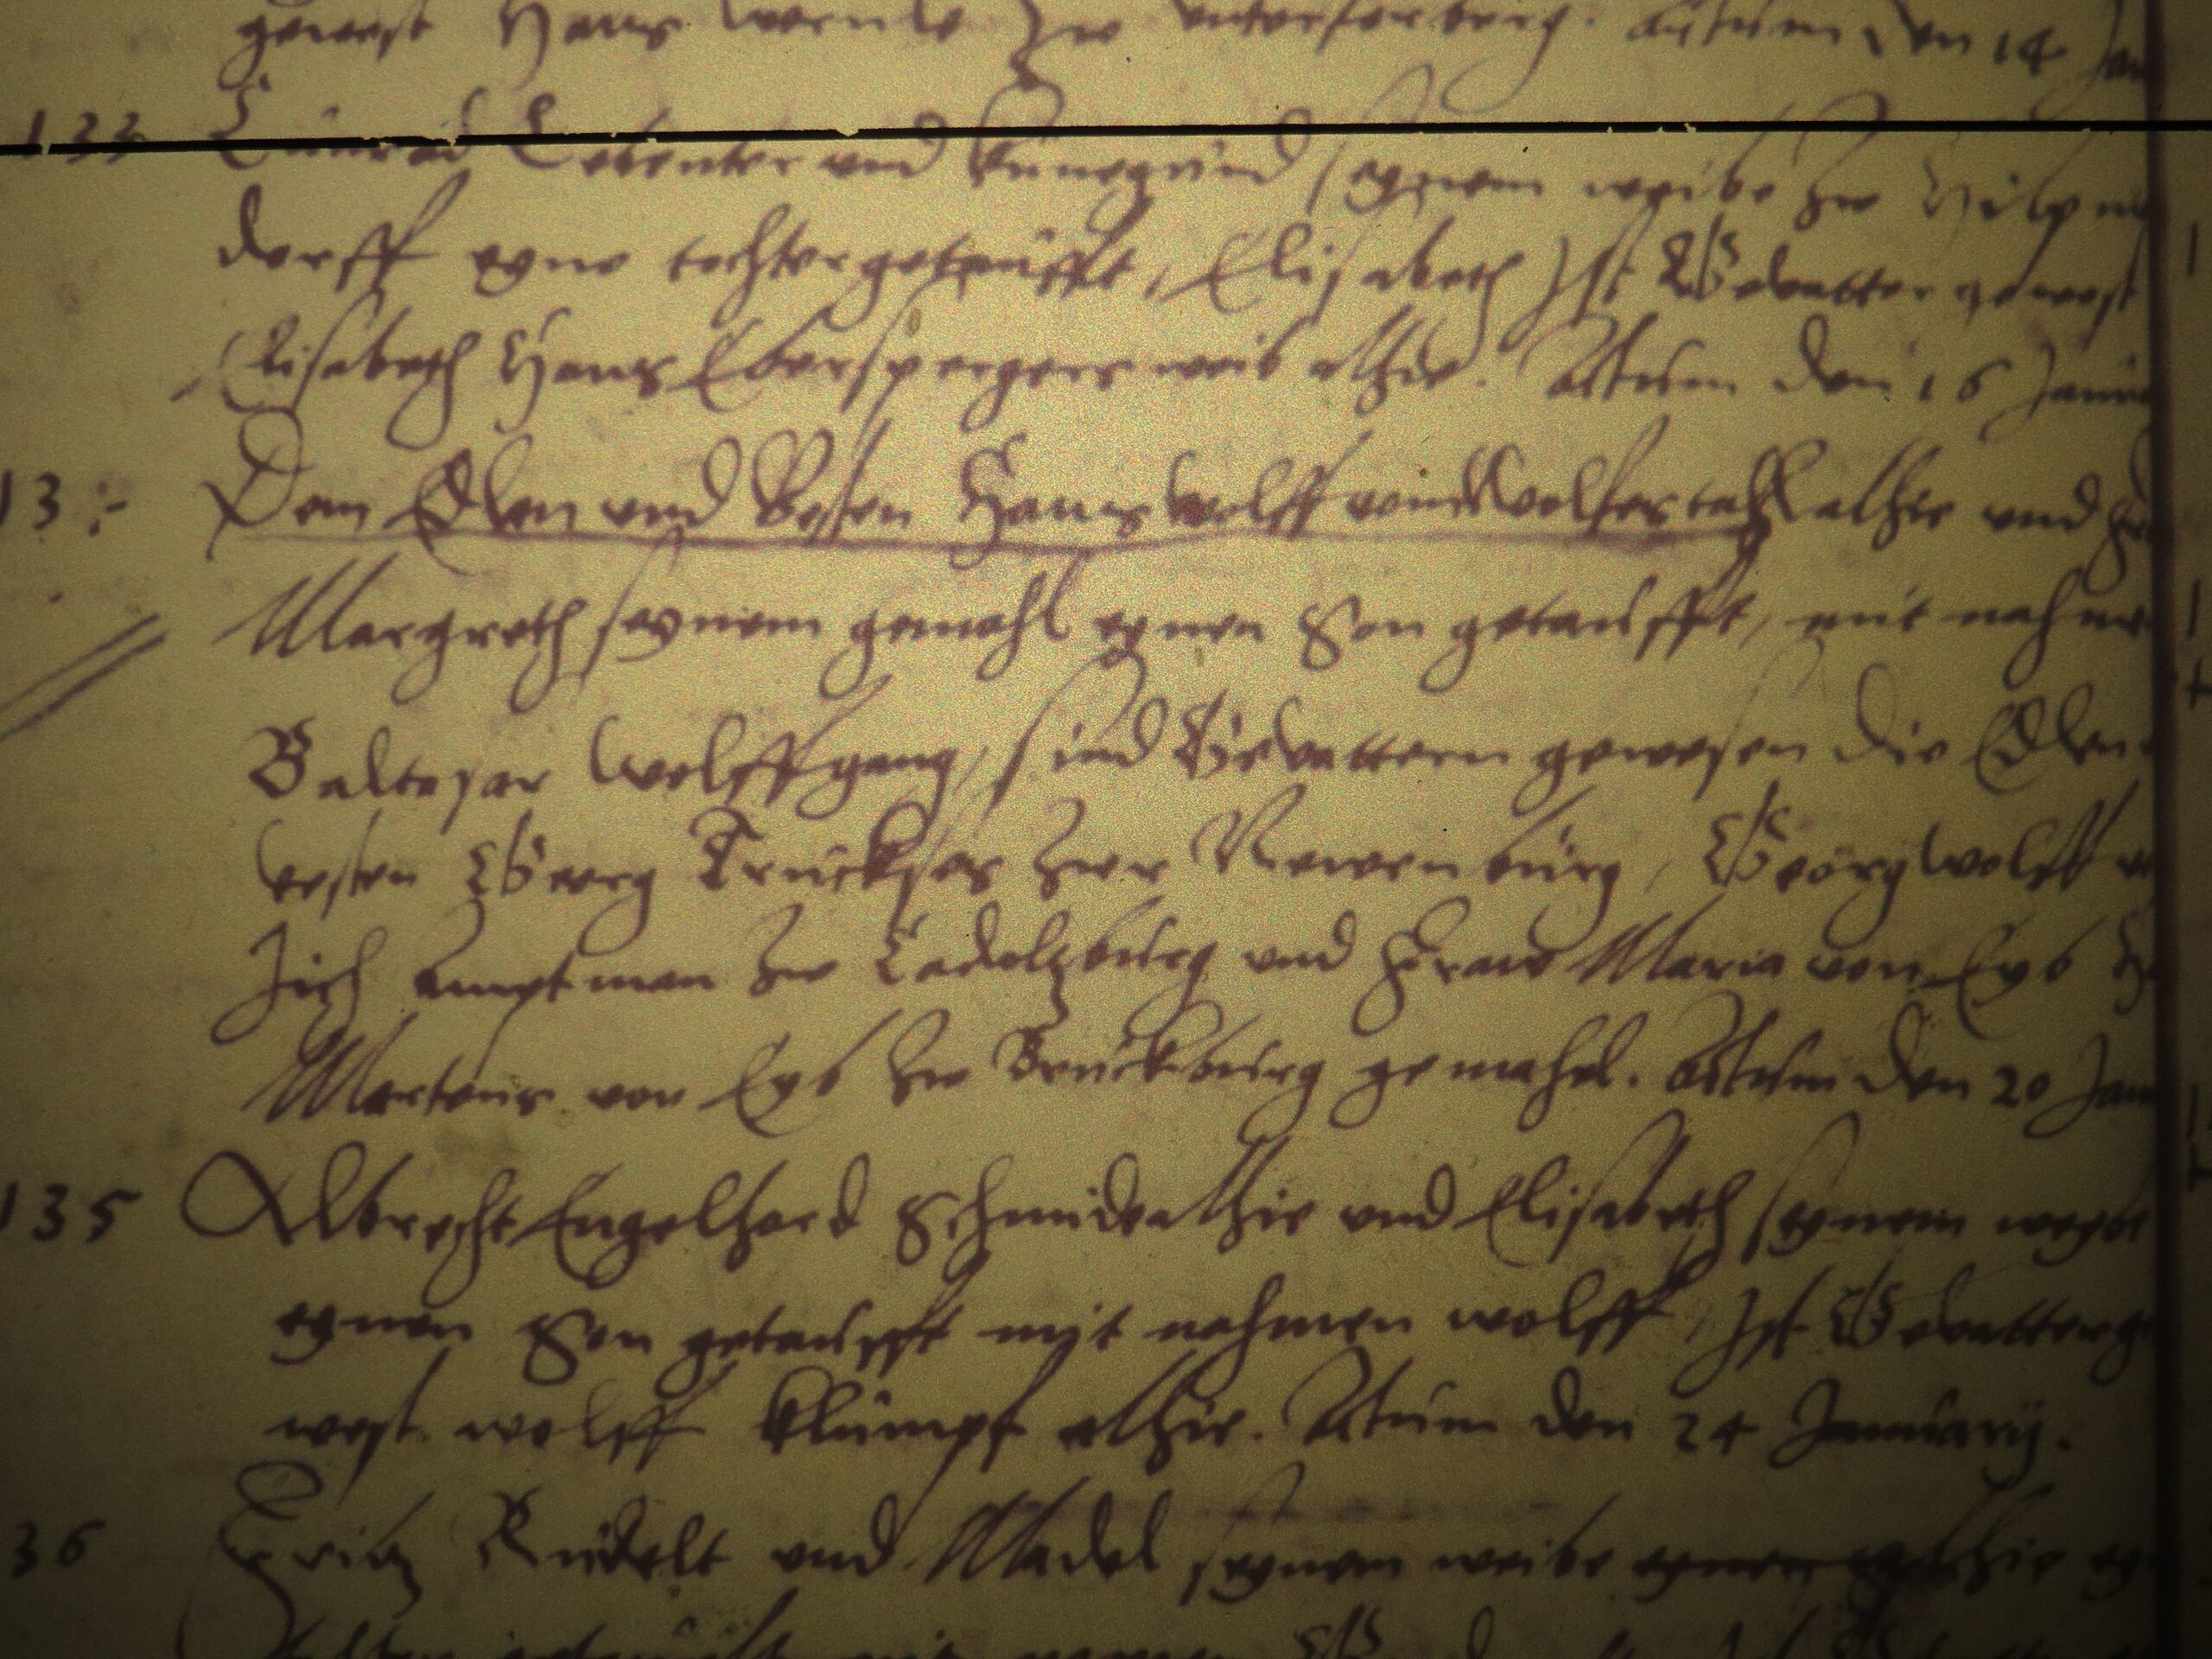 gewest Hans zu Unterferberg. Actum den 14 Jan
133 Cunrad und Kunegund seynem weibe zu Hilpm
dorff eyne tochter getaufft, Elisabeth Ist Gevatter gewest
Elisabeth Hans Eberspergers weib alhie. Actum den 16 Janua
13 Dem Edlen und Vesten Hans Wolff von Wolfestahl alhie und
Margreth seynem gemahl eynen Son getaufft, mit nahme
Baltasar Wolffgang, sind Gevattern gewesen die Edlen
vesten Georg Truckses zur Newenburg, Georg Wolff v
Jich amptman zu Cadolzburg und Fraw Maria von Eyb
Mertens von Eyb zu Bruckburg gemahel. Actum den 20 Jan
135 Albrecht Engelhard Schmid alhie und Elisabeth seynem weybe
eynen Son getaufft mit nahmen wolff, Ist Gevatter ge
west wolff Klumpf alhie. Actum den 24 Januarij.
36 Fritz Rudelt und Madel seynem weibe eynen alhie ey